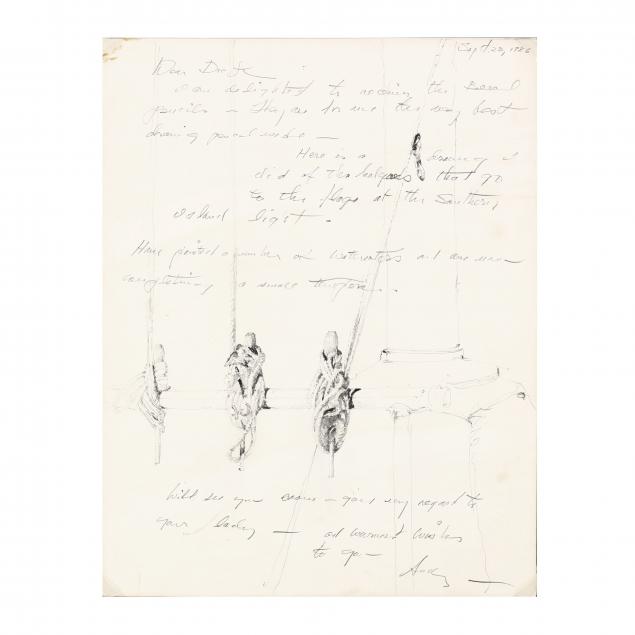 Sept. 28, 1986
Dear
I am delighted to receive the
pencils — They are for me the very best
drawing pencil made —
Here is a drawing I
did of the that go
to the flags at the Southern
Island light.
Have painted a number of watercolors and am now
completing a small tempera.
Will see you soon — give my regard to
your lady — and warmest wishes
to you —
Andy